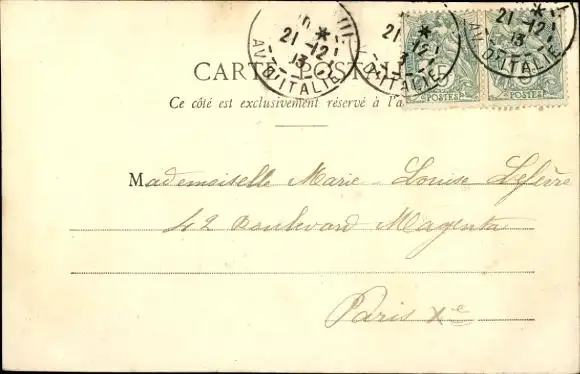 21 -12
13
AV. D'ITALIE
21 -12
13
D'ITALIE
21 -12
13
AV. D'ITALIE
CARTE POSTALE
5
POSTES
POSTES
Ce côté est exclusivement réservé à l'a
Mademoiselle Marie-Louise Lefèvre
42 Boulevard Magenta
Paris Xe